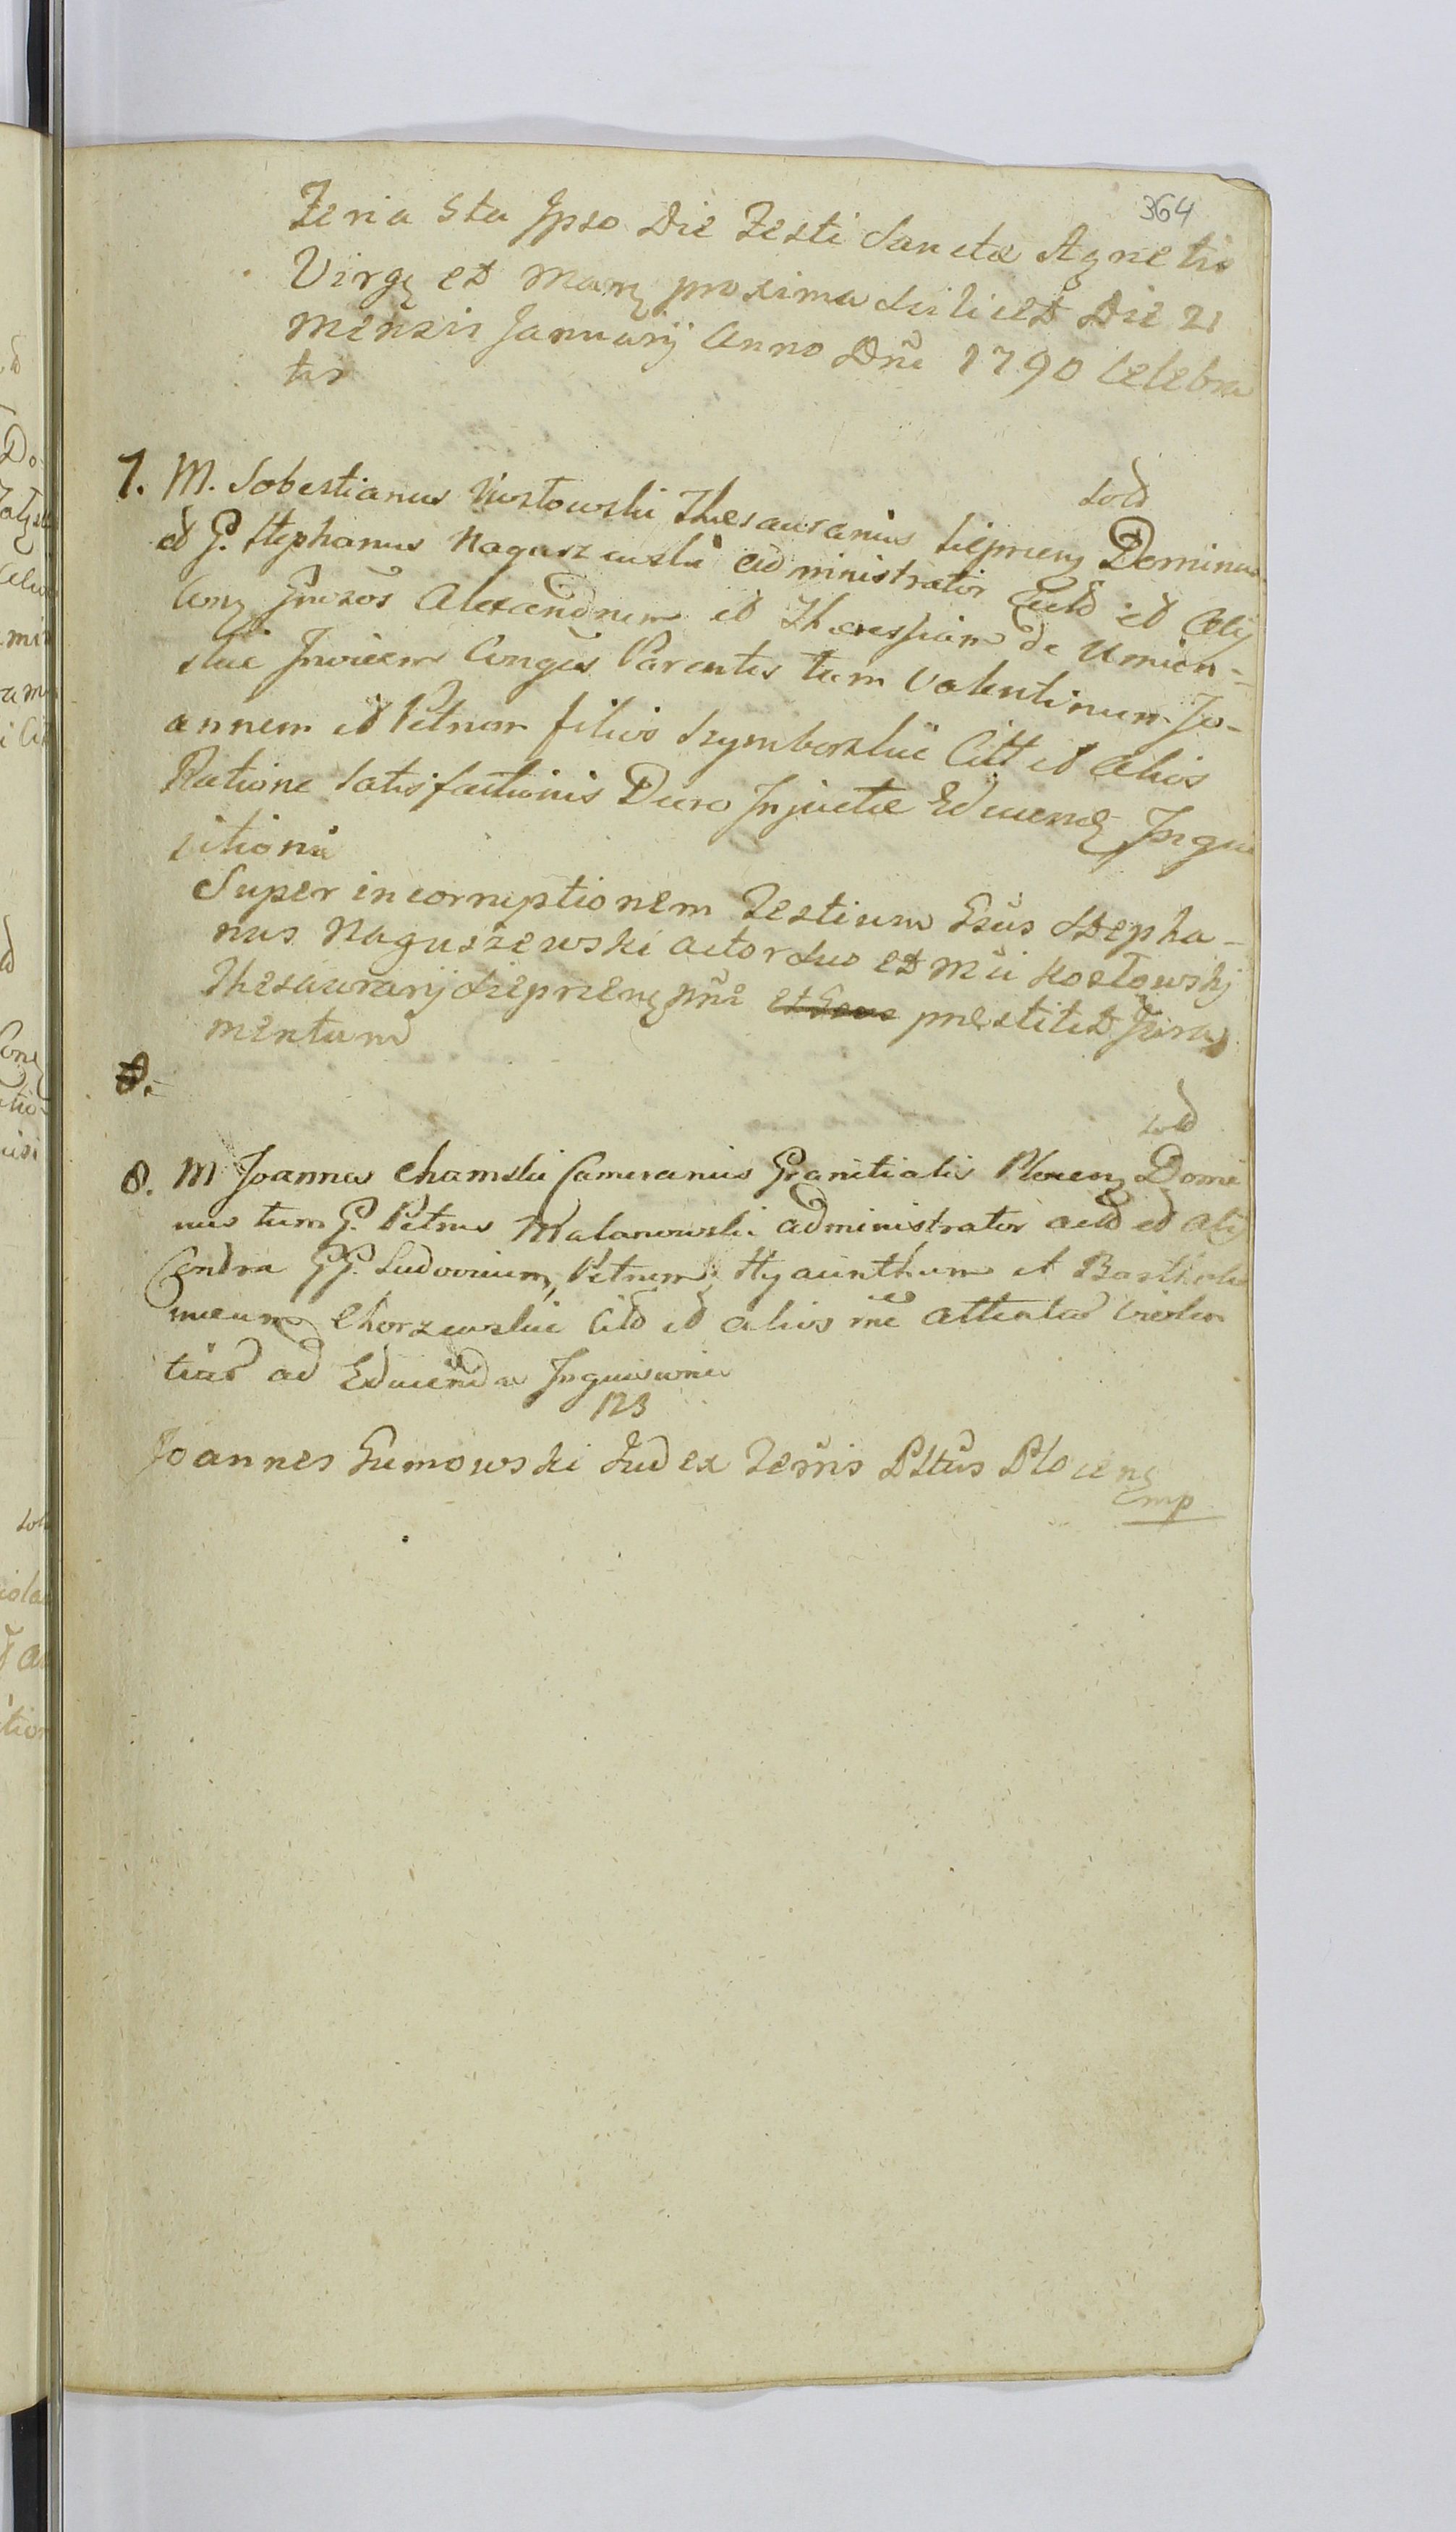 364
Feria 5ta Ipso Die Festi Sanctæ Agnetis
Virgȝ et Marȝ proxima scilicet Die 21
Mensis Januarij Anno Dñi 1790 Celebra
tis
sold
7. M. Sobestianus Kostowski Thesaurarius Sieprcenȝ Dominus
et G. Stephanus Naguszewski administrator Actd et Alij
Conȝ Gnosos Alexandrum et Theressiam de Umien-
skie Invicem Conges Parentes tum Valentinum Jo-
annem et Petrum filios Szymborskie Citt et Alios
Ratione Satisfactionis Decro Injuctæ Educenȝ Inqui
sitioni
Super incorruptionem Testium Gsus Stepha-
nus Naguszewski actor suo et Mci Kostowskj
Thesaurarij Sieprcenȝ prestitit Jura
mentum
sold
8. M Joannes Chamski Camerarius Granitialis Plocenȝ Domi
nus tum G. Petrus Malanowski administrator actd et Alij
Contra GG. Ludovicum, Petrum, Hyacinthum et Bartholo
meum Chorzewskie Citd et alios rne attentas violen
tias ad Educenda Inquisonis
123
Joannes Gumowski Judex Terris Pltus Plocenȝ
mp